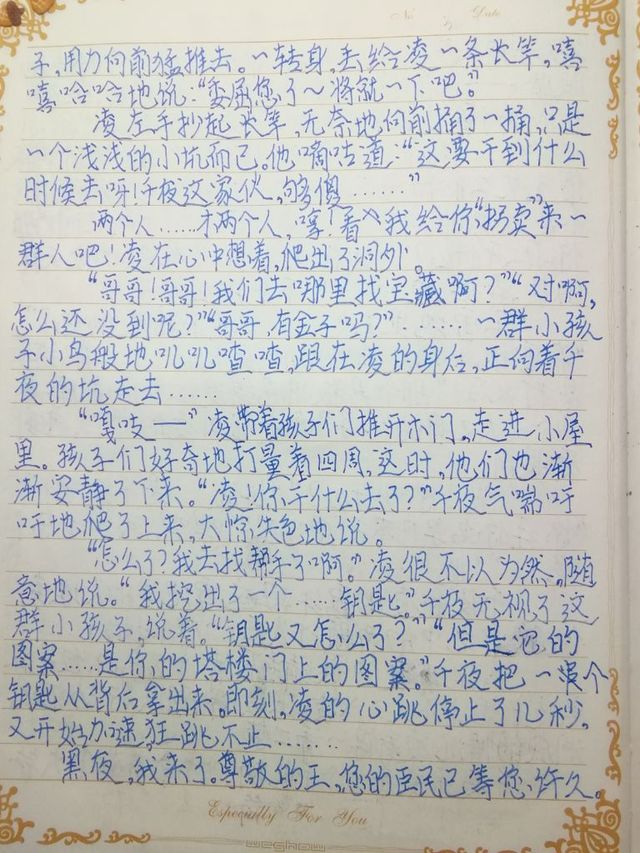 No Date
子,用力向前猛推去。一转身,丢给凌一条长竿,嘻
嘻哈哈地说:“委屈您了～将就一下吧。”
凌左手抄起长竿,无奈地向前捅了一捅,只是
一个浅浅的小坑而已。他嘀咕道:“这要干到什么
时候去呀!千夜这家伙,够傻……”
两个人……才两个人,哼!看我给你“拐卖”来一
群人吧!凌在心中想着,爬出了洞外。
“哥哥!哥哥!我们去哪里找宝藏啊?”“对啊,
怎么还没到呢?”“哥哥,有金子吗?”……一群小孩
子小鸟般地叽叽喳喳,跟在凌的身后,正向着千
夜的坑走去……
“嘎吱——”凌带着孩子们推开木门,走进小屋
里。孩子们好奇地打量着四周,这时,他们也渐
渐安静了下来。“凌!你干什么去了?”千夜气喘吁
吁地爬了上来,大惊失色地说。
“怎么了?我去找帮手了啊。”凌很不以为然,随
意地说。“我挖出了一个……钥匙。”千夜无视了这
群小孩子,说着。“钥匙又怎么了?”“但是它的
图案……是你的塔楼门上的图案。”千夜把一个
钥匙从背后拿出来。即刻,凌的心跳停止了几秒,
又开始加速,狂跳不止……
黑夜,我来了。尊敬的王,您的臣民已等您许久。
Especially For You